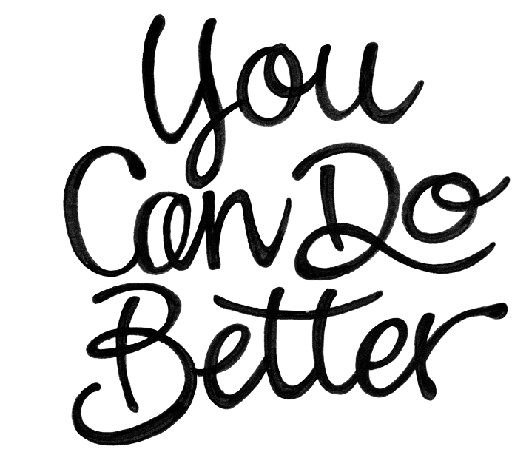 You
Can Do
Better